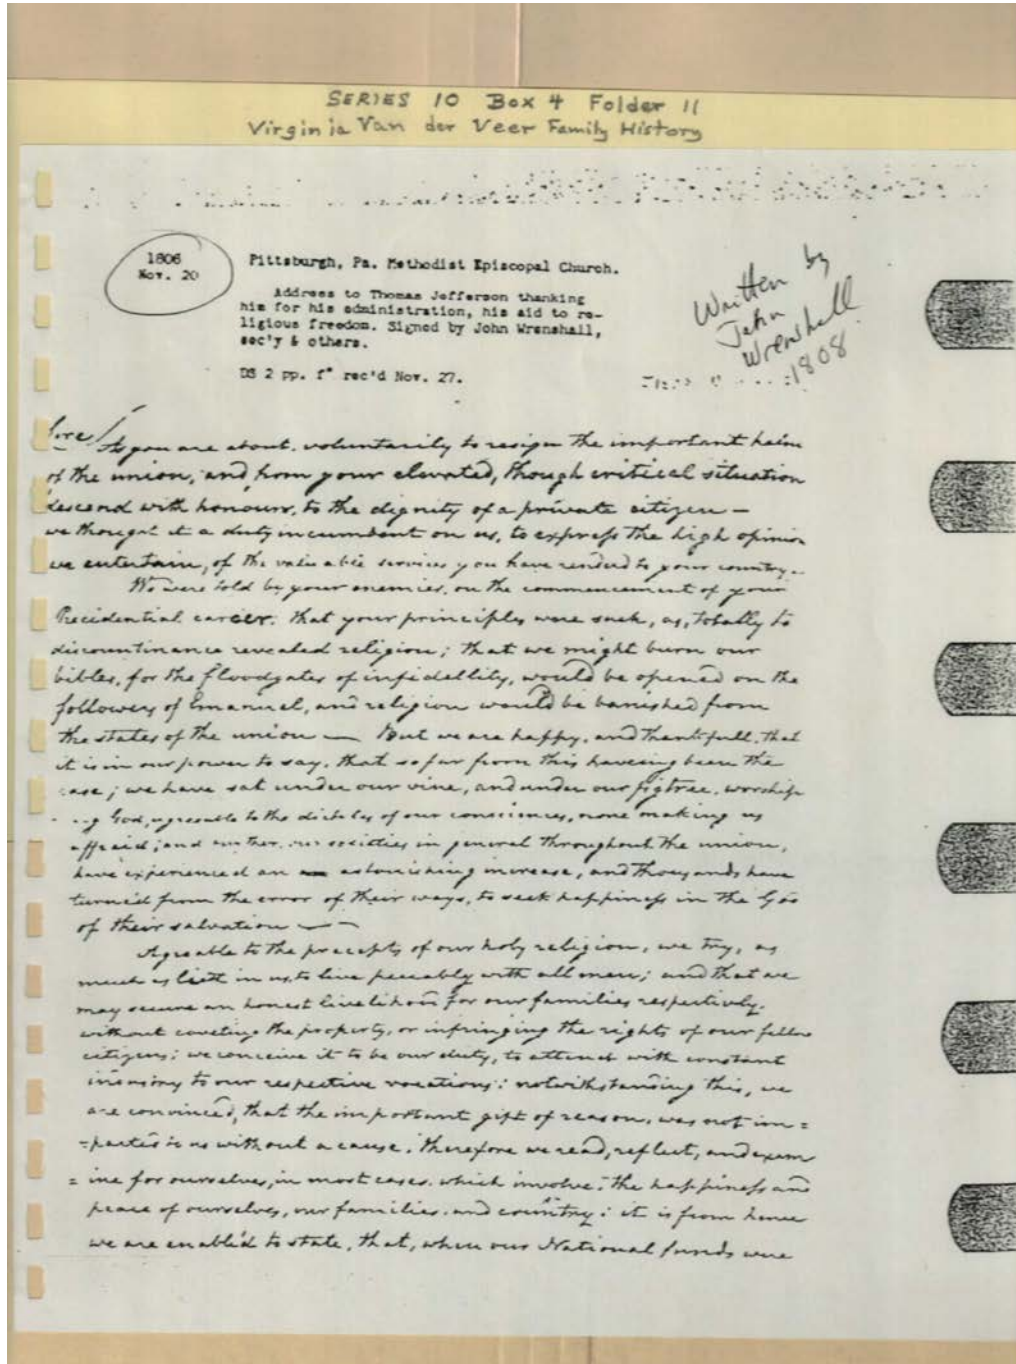 SERIES 10 Box 4 Folder 11
Virginia Van der Veer Family History
1806
Nov. 20
Pittsburgh, Pa. Methodist Episcopal Church.
Address to Thomas Jefferson thanking
him for his administration, his aid to re-
ligious freedom. Signed by John Wrenshall,
sec'y & others.
DS 2 pp. f° rec'd Nov. 27.
Written by
John
Wrenshall
1808
As you are about voluntarily to resign the important helm
of the union, and from your elevated, though critical situation
descend with honours, to the dignity of a private citizen —
we thought it a duty incumbent on us, to express the high opinion
we entertain, of the valuable services you have renderd to your country.
We were told by your enemies, on the commencement of your
Precidential career: that your principles were such, as, totally to
discountinance revealed religion; that we might burn our
bibles, for the floodgates of infidellity, would be opened on the
followers of Emanuel, and religion would be banished from
the states of the union — But we are happy, and thankfull, that
it is in our power to say, that so far from this haveing been the
case; we have sat under our vine, and under our figtree, worship
g God, agreeable to the dictates of our consciences, none making us
affraid; and further, our societies in general throughout the union,
have experienced an astonishing increase, and thousands have
turned from the error of their ways, to seek happiness in the God
of their salvation —
Agreable to the precepts of our holy religion, we try, as
much as lieth in us, to live peceably with all men; and that we
may secure an honest livelihood for our families respectively,
without coveting the property, or infringing the rights of our fellow
citizens; we conceive it to be our duty, to attend with constant
to our respective vocations: notwithstanding this, we
are convinced, that the important gift of reason, was not im=
=parted to us without a cause; therefore we read, reflect, and exam
= ine for ourselves, in most cases, which involve, the happiness and
peace of ourselves, our families, and country: it is from hence
we are enabled to state, that, when our National funds were